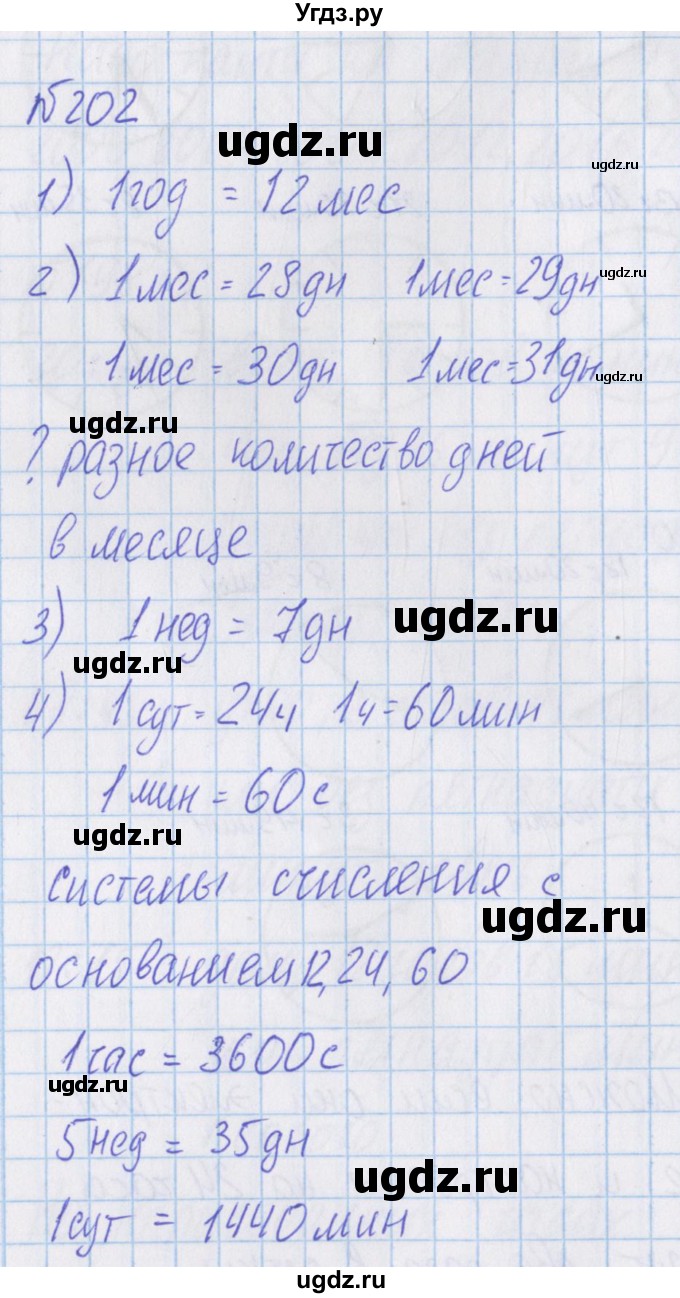 Угдз.ру
№202
ugdz.ru
ugdz.ru
1) 1 год = 12 мес
2) 1 мес = 28 дн 1 мес = 29 дн
ugdz.ru
1 мес = 30 дн 1 мес = 31 дн
ugdz.ru
ugdz.ru
? разное количество дней
в месяце
3) 1 нед = 7 дн
ugdz.ru
ugdz.ru
4) 1 сут = 24 ч 1 ч = 60 мин
1 мин = 60 с
ugdz.ru
Системы счисления с
ugdz.ru
основанием 12, 24, 60
1 час = 3600 с
ugdz.ru
5 нед = 35 дн
ugdz.ru
1 сут = 1440 мин
ugdz.ru